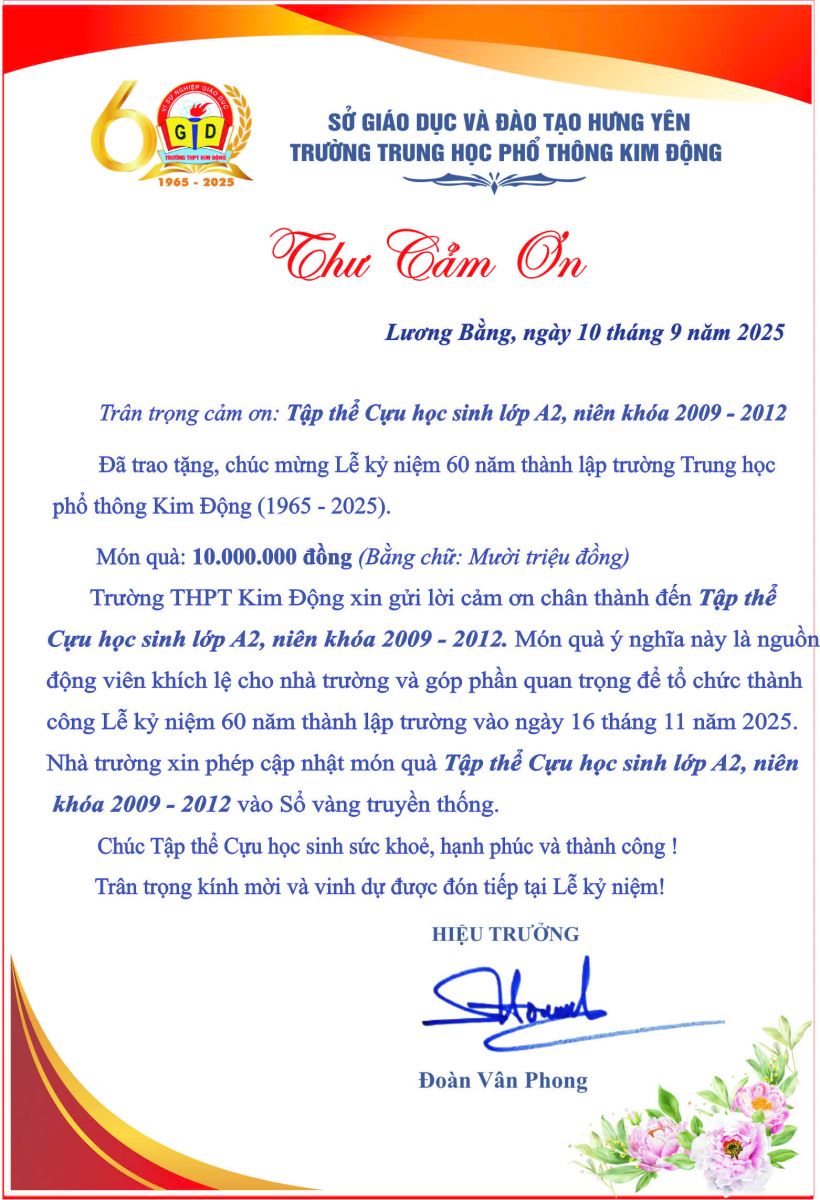 60
VÌ SỰ NGHIỆP GIÁO DỤC
G D
TRƯỜNG THPT KIM ĐỘNG
1965 - 2025
SỞ GIÁO DỤC VÀ ĐÀO TẠO HƯNG YÊN
TRƯỜNG TRUNG HỌC PHỔ THÔNG KIM ĐỘNG
Thư Cảm Ơn
Lương Bằng, ngày 10 tháng 9 năm 2025
Trân trọng cảm ơn: Tập thể Cựu học sinh lớp A2, niên khóa 2009 - 2012
Đã trao tặng, chúc mừng Lễ kỷ niệm 60 năm thành lập trường Trung học
phổ thông Kim Động (1965 - 2025).
Món quà: 10.000.000 đồng (Bằng chữ: Mười triệu đồng)
Trường THPT Kim Động xin gửi lời cảm ơn chân thành đến Tập thể
Cựu học sinh lớp A2, niên khóa 2009 - 2012. Món quà ý nghĩa này là nguồn
động viên khích lệ cho nhà trường và góp phần quan trọng để tổ chức thành
công Lễ kỷ niệm 60 năm thành lập trường vào ngày 16 tháng 11 năm 2025.
Nhà trường xin phép cập nhật món quà Tập thể Cựu học sinh lớp A2, niên
khóa 2009 - 2012 vào Sổ vàng truyền thống.
Chúc Tập thể Cựu học sinh sức khoẻ, hạnh phúc và thành công !
Trân trọng kính mời và vinh dự được đón tiếp tại Lễ kỷ niệm!
HIỆU TRƯỞNG
Đoàn Vân Phong